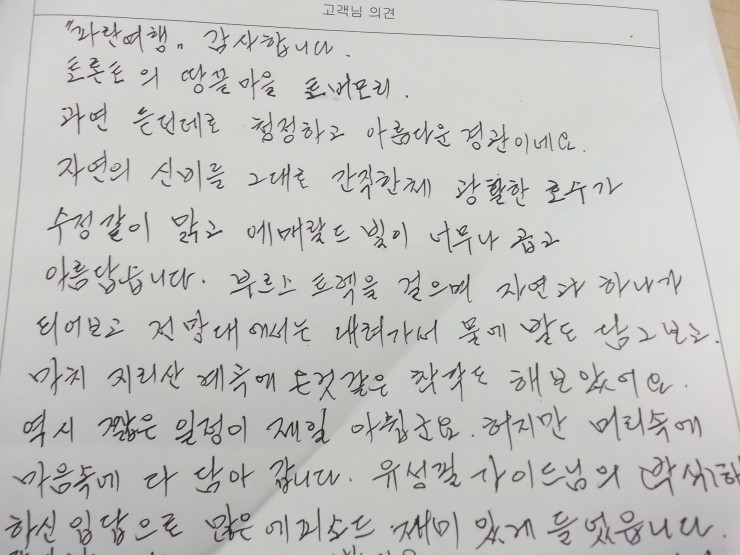 고객님 의견
"파란여행" 감사합니다.
토론토의 땅끝마을 토버모리.
과연 듣던데로 청정하고 아름다운 경관이네요.
자연의 신비를 그대로 간직한체 광활한 호수가
수정같이 맑고 에매랄드 빛이 너무나 곱고
아름답습니다. 부르스 트랙을 걸으며 자연과 하나가
되어보고 전망대에서는 내려가서 물에 발도 담그보고.
마치 지리산 계곡에 온것같은 착각도 해보았어요.
역시 짧은 일정이 제일 아쉽군요. 허지만 머리속에
마음속에 다 담아 갑니다. 유성길 가이드님의 (박식)하
하신 입담으로 많은 에피소드 재미 있게 들었읍니다.